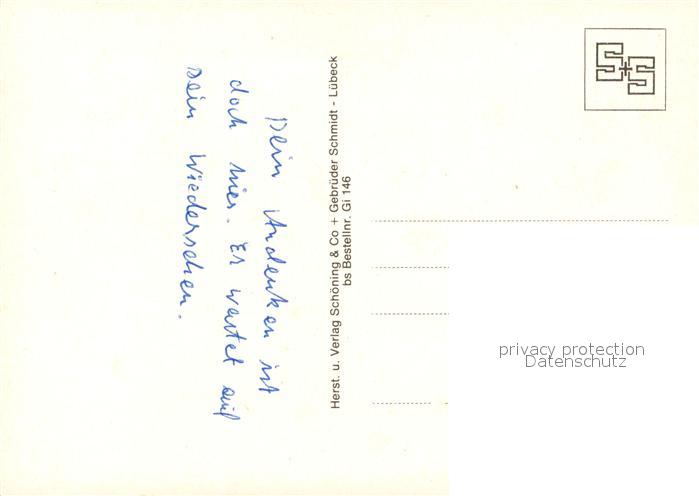 Dein Andenken ist
doch hier. Es wartet auf
Dein Wiedersehen.
Herst. u. Verlag Schöning & Co + Gebrüder Schmidt - Lübeck
bs Bestellnr. Gi 146
S+S
privacy protection
Datenschutz